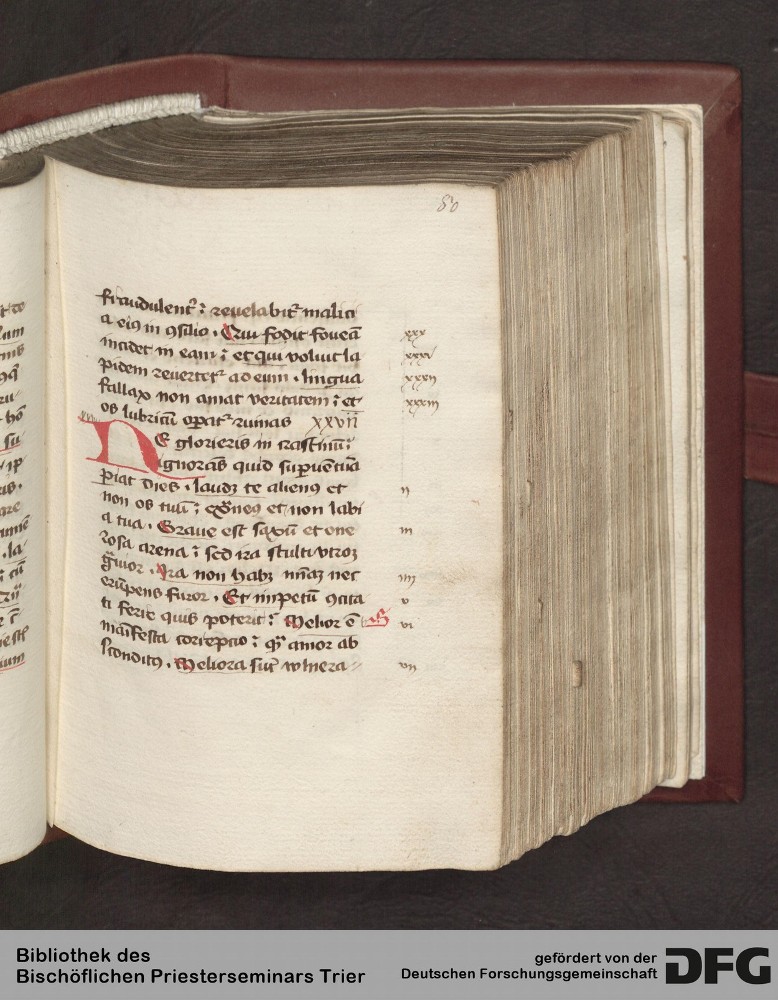 80
fraudulent᷒ : revelabit᷒ malici
a ei⁹ in ꝯsilio . Qui fodit foveā
xxx
incidet in eam : et qui voluit la
xxxi
pidem revertet᷒ ad eum . lingua
xxxii
fallax non amat veritatem : et
xxxiii
os lubricū oꝑat᷒ ruinas xxvii
NE glorieris in crastinū :
ignorans quid suꝑventura
pariat dies . laudet te alien⁹ et
ii
non os tuū : extrane⁹ et non labi
a tua . Grave est saxū et one
iii
rosa arena : sed ira stulti utroqꝫ
gravior . Ira non habꝫ miam nec
iiii
erūpens furor . Et impetū ꝯcita
v
ti ferre quis poterit : Melior ē
vi
manifesta correptio : qm amor ab
scondit⁹ . Meliora sūt vulnera
vii
Bibliothek des
Bischöflichen Priesterseminars Trier
gefördert von der
Deutschen Forschungsgemeinschaft
DFG